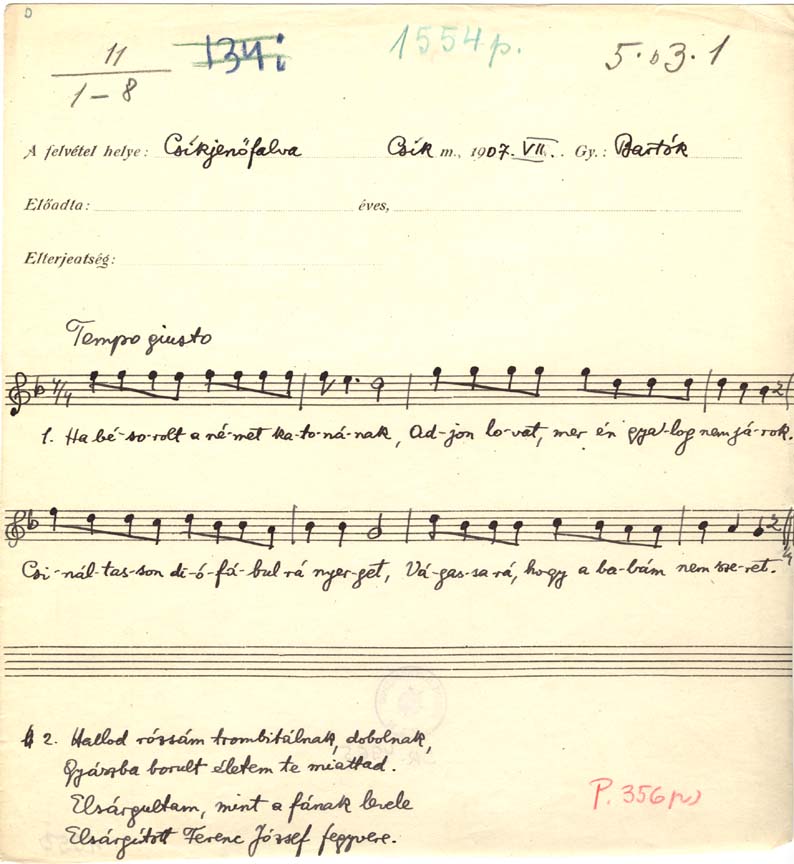 D
11 134i 1554p. 5.b3.1
1-8
A felvétel helye: Csíkjenőfalva Csík m., 1907. VII. Gy.: Bartók
Előadta: éves,
Elterjedtség:
Tempo giusto
4/4
1. Ha bé-so-rolt a né-met ka-to-ná-nak, Ad-jon lo-vat, mer én gya-log nem já-rok.
Csi-nál-tas-son di-ó-fá-bul rá nyer-get, Vá-gas-sa rá, hogy a ba-bám nem sze-ret.
2. Hallod rózsám trombitálnak, dobolnak,
Gyászba borult életem te miattad.
Elsárgultam, mint a fának levele
P. 356
Elsárgított Ferenc József fegyvere.